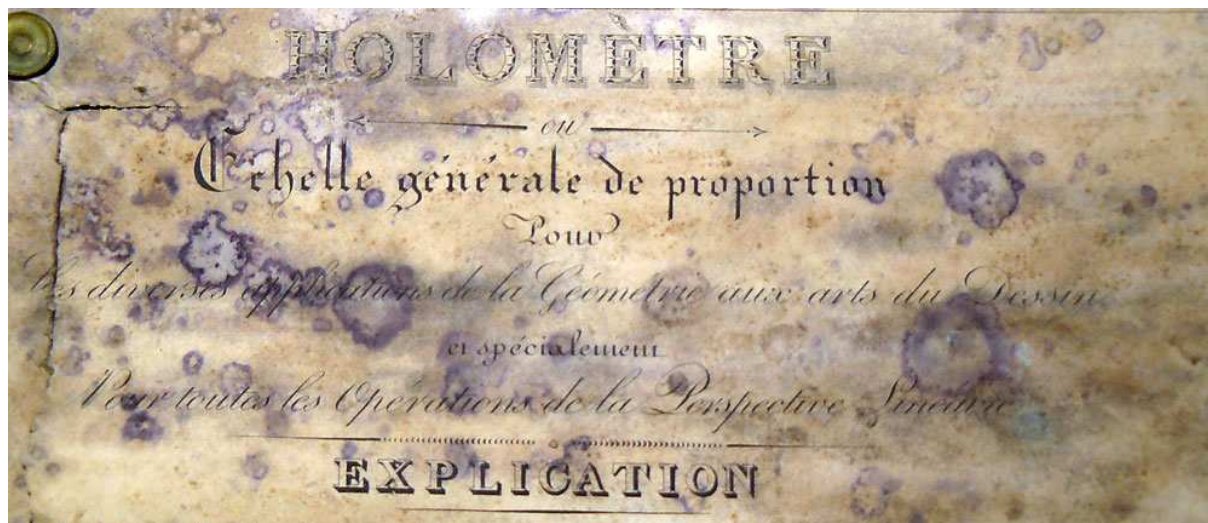 HOLOMÈTRE
ou
Echelle générale de proportion
Pour
les diverses applications de la Géométrie aux arts du Dessin
et spécialement
Pour toutes les Opérations de la Perspective Linéaire
EXPLICATION